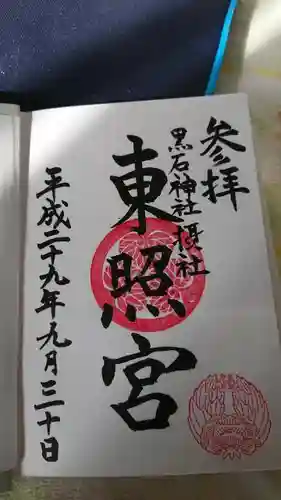 参拝
黒石神社摂社
東照宮
平成二十九年九月三十日